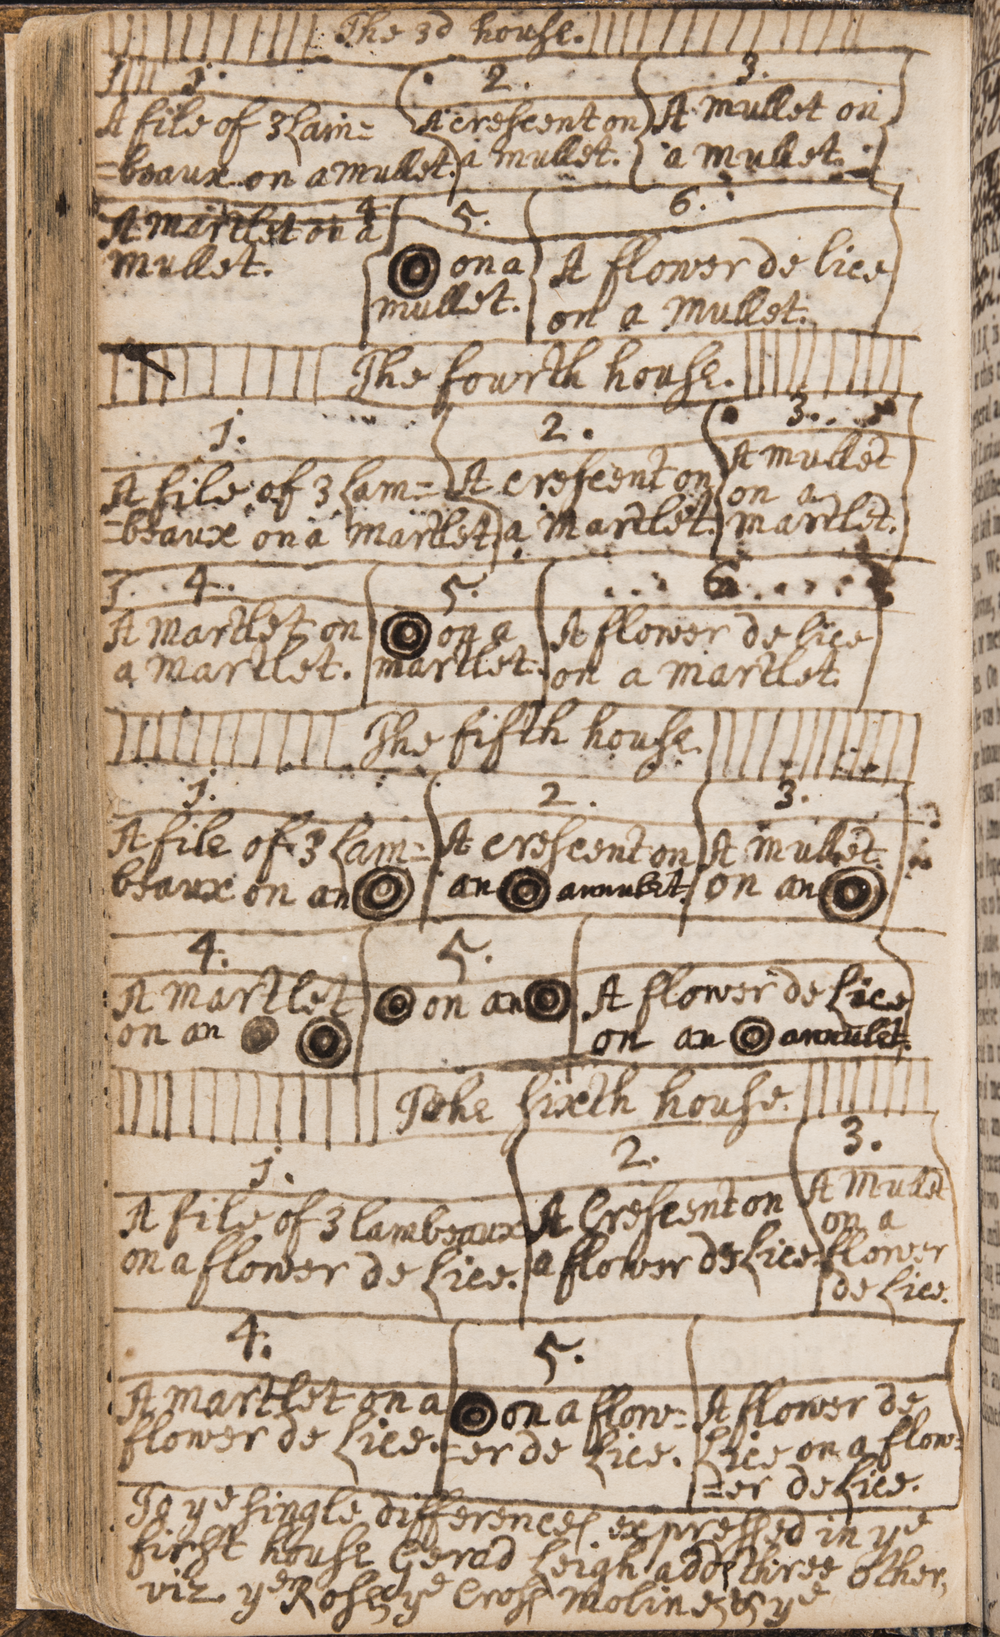 The 3d house.
1. 2. 3.
A file of 3 Lam=
=beaux on a mullet.
A crescent on
a mullet.
A mullet on
a mullet.
4. 5. 6.
A martlet on a
mullet.
on a
mullet.
A flower de lice
on a mullet.
The fourth house.
1. 2. 3.
A file of 3 Lam=
=beaux on a martlet.
A crescent on
a martlet.
A mullet
on a
martlet.
4. 5. 6.
A martlet on
a martlet.
on a
martlet.
A flower de lice
on a martlet.
The fifth house.
1. 2. 3.
A file of 3 Lam=
beaux on an
A crescent on
an annulet.
A mullet
on an
4. 5.
A martlet
on an
on an
A flower de Lice
on an annulet.
The sixth house.
1. 2. 3.
A file of 3 lambeaux
on a flower de Lice.
A Crescent on
a flower de Lice.
A Mullet
on a
flower
de Lice.
4. 5.
A martlet on a
flower de Lice.
on a flow=
=er de Lice.
A flower de
Lice on a flow=
=er de Lice.
To ye single differences expressed in ye
first house Gerad Leigh adds three other,
viz. ye Rose, ye Cross moline, & ye